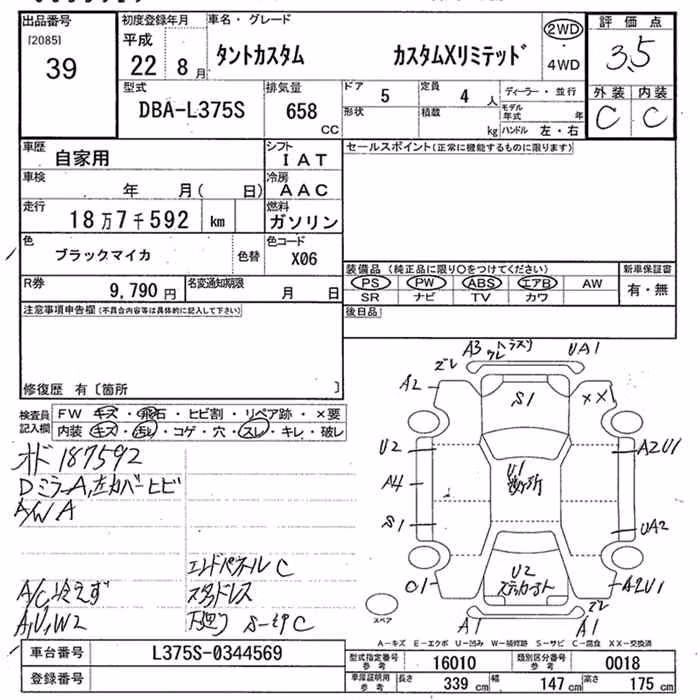 出品番号
[2085]
39
初度登録年月
平成
22 8 月
車名・グレード
タントカスタム カスタムXリミテッド
2WD
・
4WD
評価点
3.5
外装 内装
C C
型式
DBA-L375S
排気量
658
CC
ドア
5
定員
4 人
ディーラー・並行
形状
積数
kg
モデル年式 年
ハンドル 左・右
車歴
自家用
シフト
IAT
車検
年 月( 日)
冷房
AAC
走行
18万7千592 km
燃料
ガソリン
色
ブラックマイカ
色替
色コード
X06
R券
9,790 円
名変通知期限
月 日
セールスポイント(正常に機能するものに限ります)
装備品 (純正品に限り○をつけてください)
PS PW ABS エアB AW
SR ナビ TV カワ
新車保証書
有・無
後日品
注意事項申告欄(不具合内容等は具体的に記入して下さい)
修復歴 有〔箇所 〕
検査員記入欄
FW キズ・飛石・ヒビ割・リペア跡・×要
内装 キズ・汚レ・コゲ・穴・スレ・キレ・破レ
オド 187592
DミラーA,左カバーヒビ
A/W A
エンドパネル C
A/C冷えず
A,U,W2
下廻り S〜C
A3
ズレ
UA1
A2
S1
××
U2
A2U1
A4
U1
S1
UA2
U2
C1
A2U1
ズレ
A1
A1
スペア
A-キズ E-エクボ U-凹み W-補修跡 S-サビ C-腐食 XX-交換済
車台番号
L375S-0344569
登録番号
型式指定番号 参考
16010
類別区分番号 参考
0018
車庫証明用 参考
長さ 339 cm 幅 147 cm 高さ 175 cm